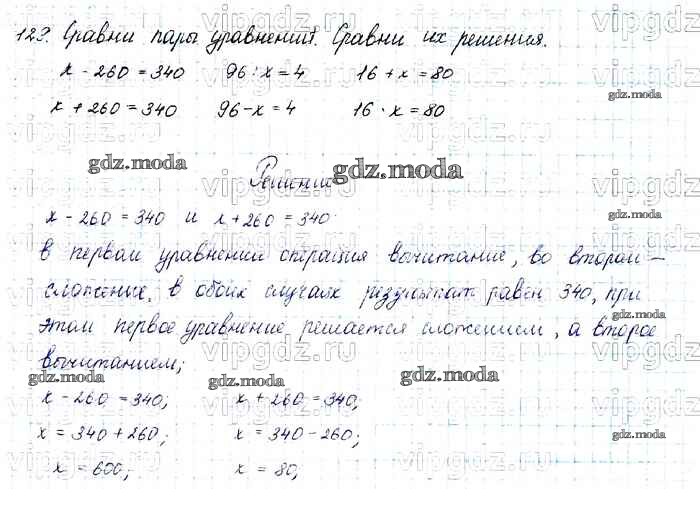 123. Сравни пары уравнений. Сравни их решения.
x - 260 = 340 96 : x = 4 16 + x = 80
x + 260 = 340 96 - x = 4 16 · x = 80
Решение
x - 260 = 340 и x + 260 = 340
В первом уравнении операция вычитание, во втором -
сложение, в обоих случаях результат равен 340, при
этом первое уравнение решается сложением, а второе
вычитанием;
x - 260 = 340; x + 260 = 340;
x = 340 + 260; x = 340 - 260;
x = 600; x = 80;
gdz.moda
vipgdz.ru